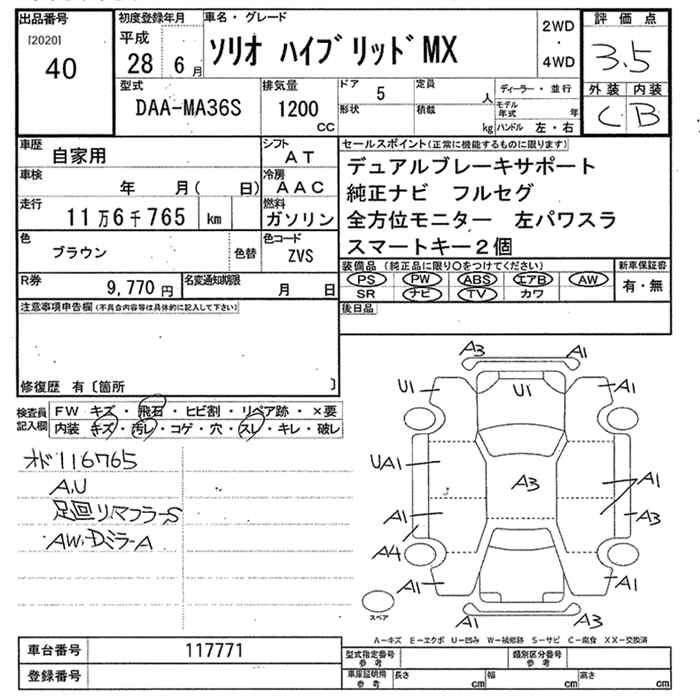 出品番号
[2020]
40
初度登録年月
平成
28 6月
車名・グレード
ソリオ ハイブリッドMX
2WD
・
4WD
評価点
3.5
外装 内装
C B
型式
DAA-MA36S
排気量
1200
cc
ドア 5
形状
定員 人
積載 kg
ディーラー・並行
モデル年式 年
ハンドル 左・右
車歴
自家用
シフト
AT
車検
年 月( 日)
冷房
AAC
走行
11万6千765 km
燃料
ガソリン
色
ブラウン
色替
色コード
ZVS
R券
9,770円
名変通知期限
月 日
セールスポイント(正常に機能するものに限ります)
デュアルブレーキサポート
純正ナビ フルセグ
全方位モニター 左パワスラ
スマートキー2個
装備品 (純正品に限り○をつけてください)
PS PW ABS エアB AW
SR ナビ TV カワ
新車保証書
有・無
注意事項申告欄(不具合内容等は具体的に記入して下さい)
修復歴 有〔箇所 〕
後日品
検査員記入欄
FW キズ・飛石・ヒビ割・リペア跡・×要
内装 キズ・汚レ・コゲ・穴・スレ・キレ・破レ
オド116765
A,U
足回リ、マフラーS
AW・DミラーA
A3 A1
U1 U1 A1
UA1 A3 A1
A1 A3
A4
A1 A1
A1 A3
スペア
A―キズ E―エクボ U―凹み W―補修跡 S―サビ C―腐食 XX―交換済
車台番号 117771
登録番号
型式指定番号
参考
類別区分番号
参考
車庫証明用
参考
長さ cm 幅 cm 高さ cm